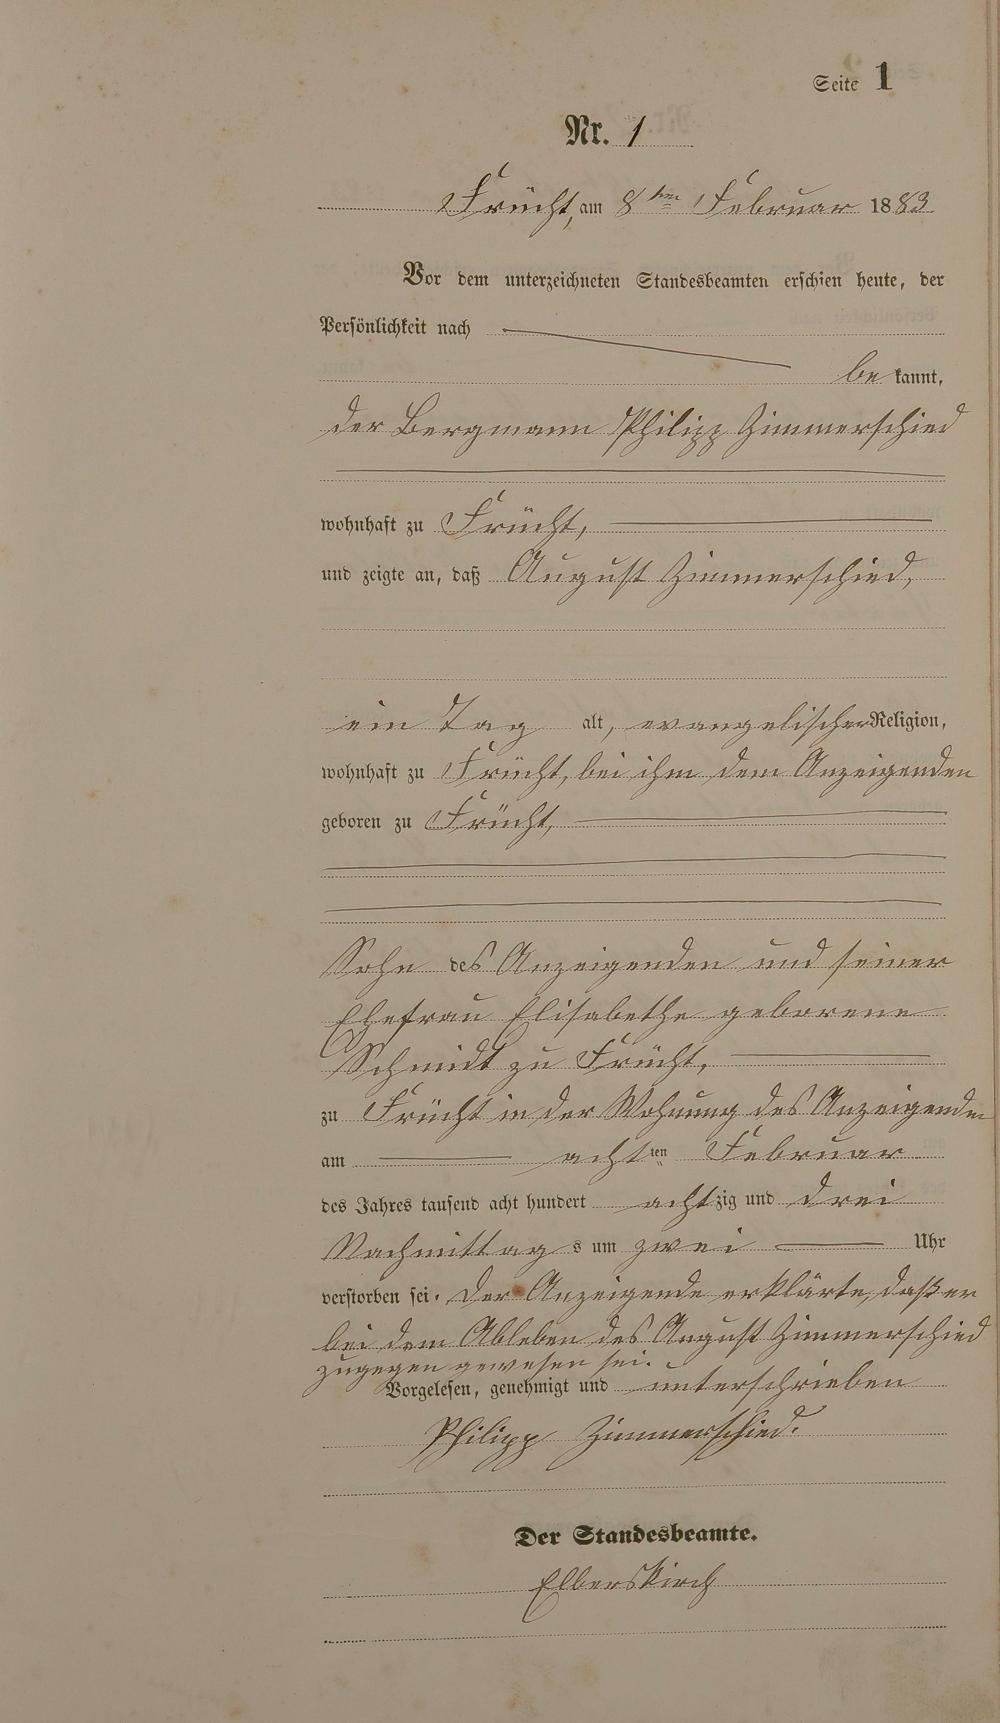 Seite 1
Nr. 1
Frücht, am 8ten Februar 1883
Vor dem unterzeichneten Standesbeamten erschien heute, der
Persönlichkeit nach
bekannt,
der Bergmann Philipp Zimmerschied
wohnhaft zu Frücht,
und zeigte an, daß August Zimmerschied,
ein Tag alt, evangelischer Religion,
wohnhaft zu Frücht, bei ihm dem Anzeigenden
geboren zu Frücht,
Sohn des Anzeigenden und seiner
Ehefrau Elisabethe geborene
Schmidt zu Frücht,
zu Frücht in der Wohnung des Anzeigenden
am achtten Februar
des Jahres tausend acht hundert achtzig und drei
Nachmittags um zwei Uhr
verstorben sei. Der Anzeigende erklärte, daß er
bei dem Ableben des August Zimmerschied
zugegen gewesen sei.
Vorgelesen, genehmigt und unterschrieben
Philipp Zimmerschied.
Der Standesbeamte.
Elberskirch